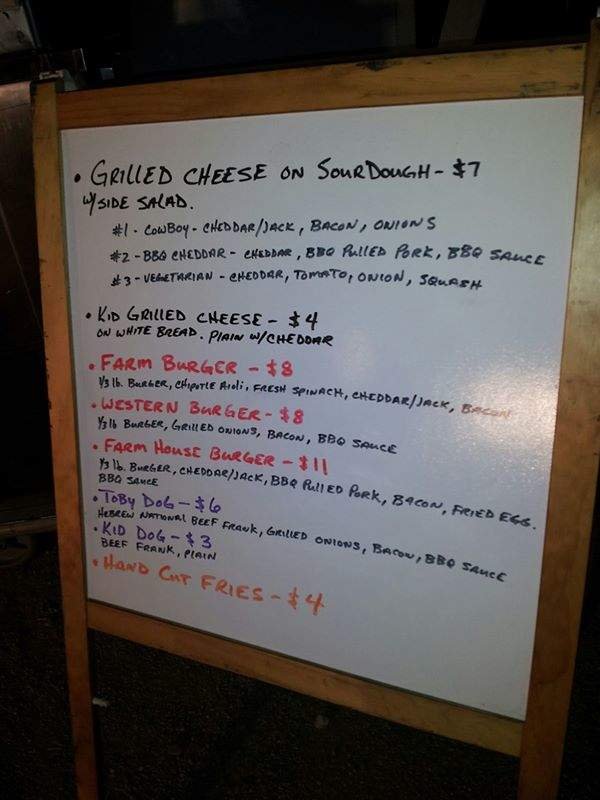 • GRILLED CHEESE ON SOURDOUGH - $7
W/SIDE SALAD.
#1 - COWBOY - CHEDDAR/JACK, BACON, ONIONS
#2 - BBQ CHEDDAR - CHEDDAR, BBQ PULLED PORK, BBQ SAUCE
#3 - VEGETARIAN - CHEDDAR, TOMATO, ONION, SQUASH
• KID GRILLED CHEESE - $4
ON WHITE BREAD. PLAIN W/CHEDDAR
• FARM BURGER - $8
1/3 lb. BURGER, CHIPOTLE AIOLI, FRESH SPINACH, CHEDDAR/JACK, BACON
• WESTERN BURGER - $8
1/3 lb BURGER, GRILLED ONIONS, BACON, BBQ SAUCE
• FARM HOUSE BURGER - $11
1/3 lb. BURGER, CHEDDAR/JACK, BBQ PULLED PORK, BACON, FRIED EGG.
BBQ SAUCE
• TOBY DOG - $6
HEBREW NATIONAL BEEF FRANK, GRILLED ONIONS, BACON, BBQ SAUCE
• KID DOG - $3
BEEF FRANK, PLAIN
• HAND CUT FRIES - $4